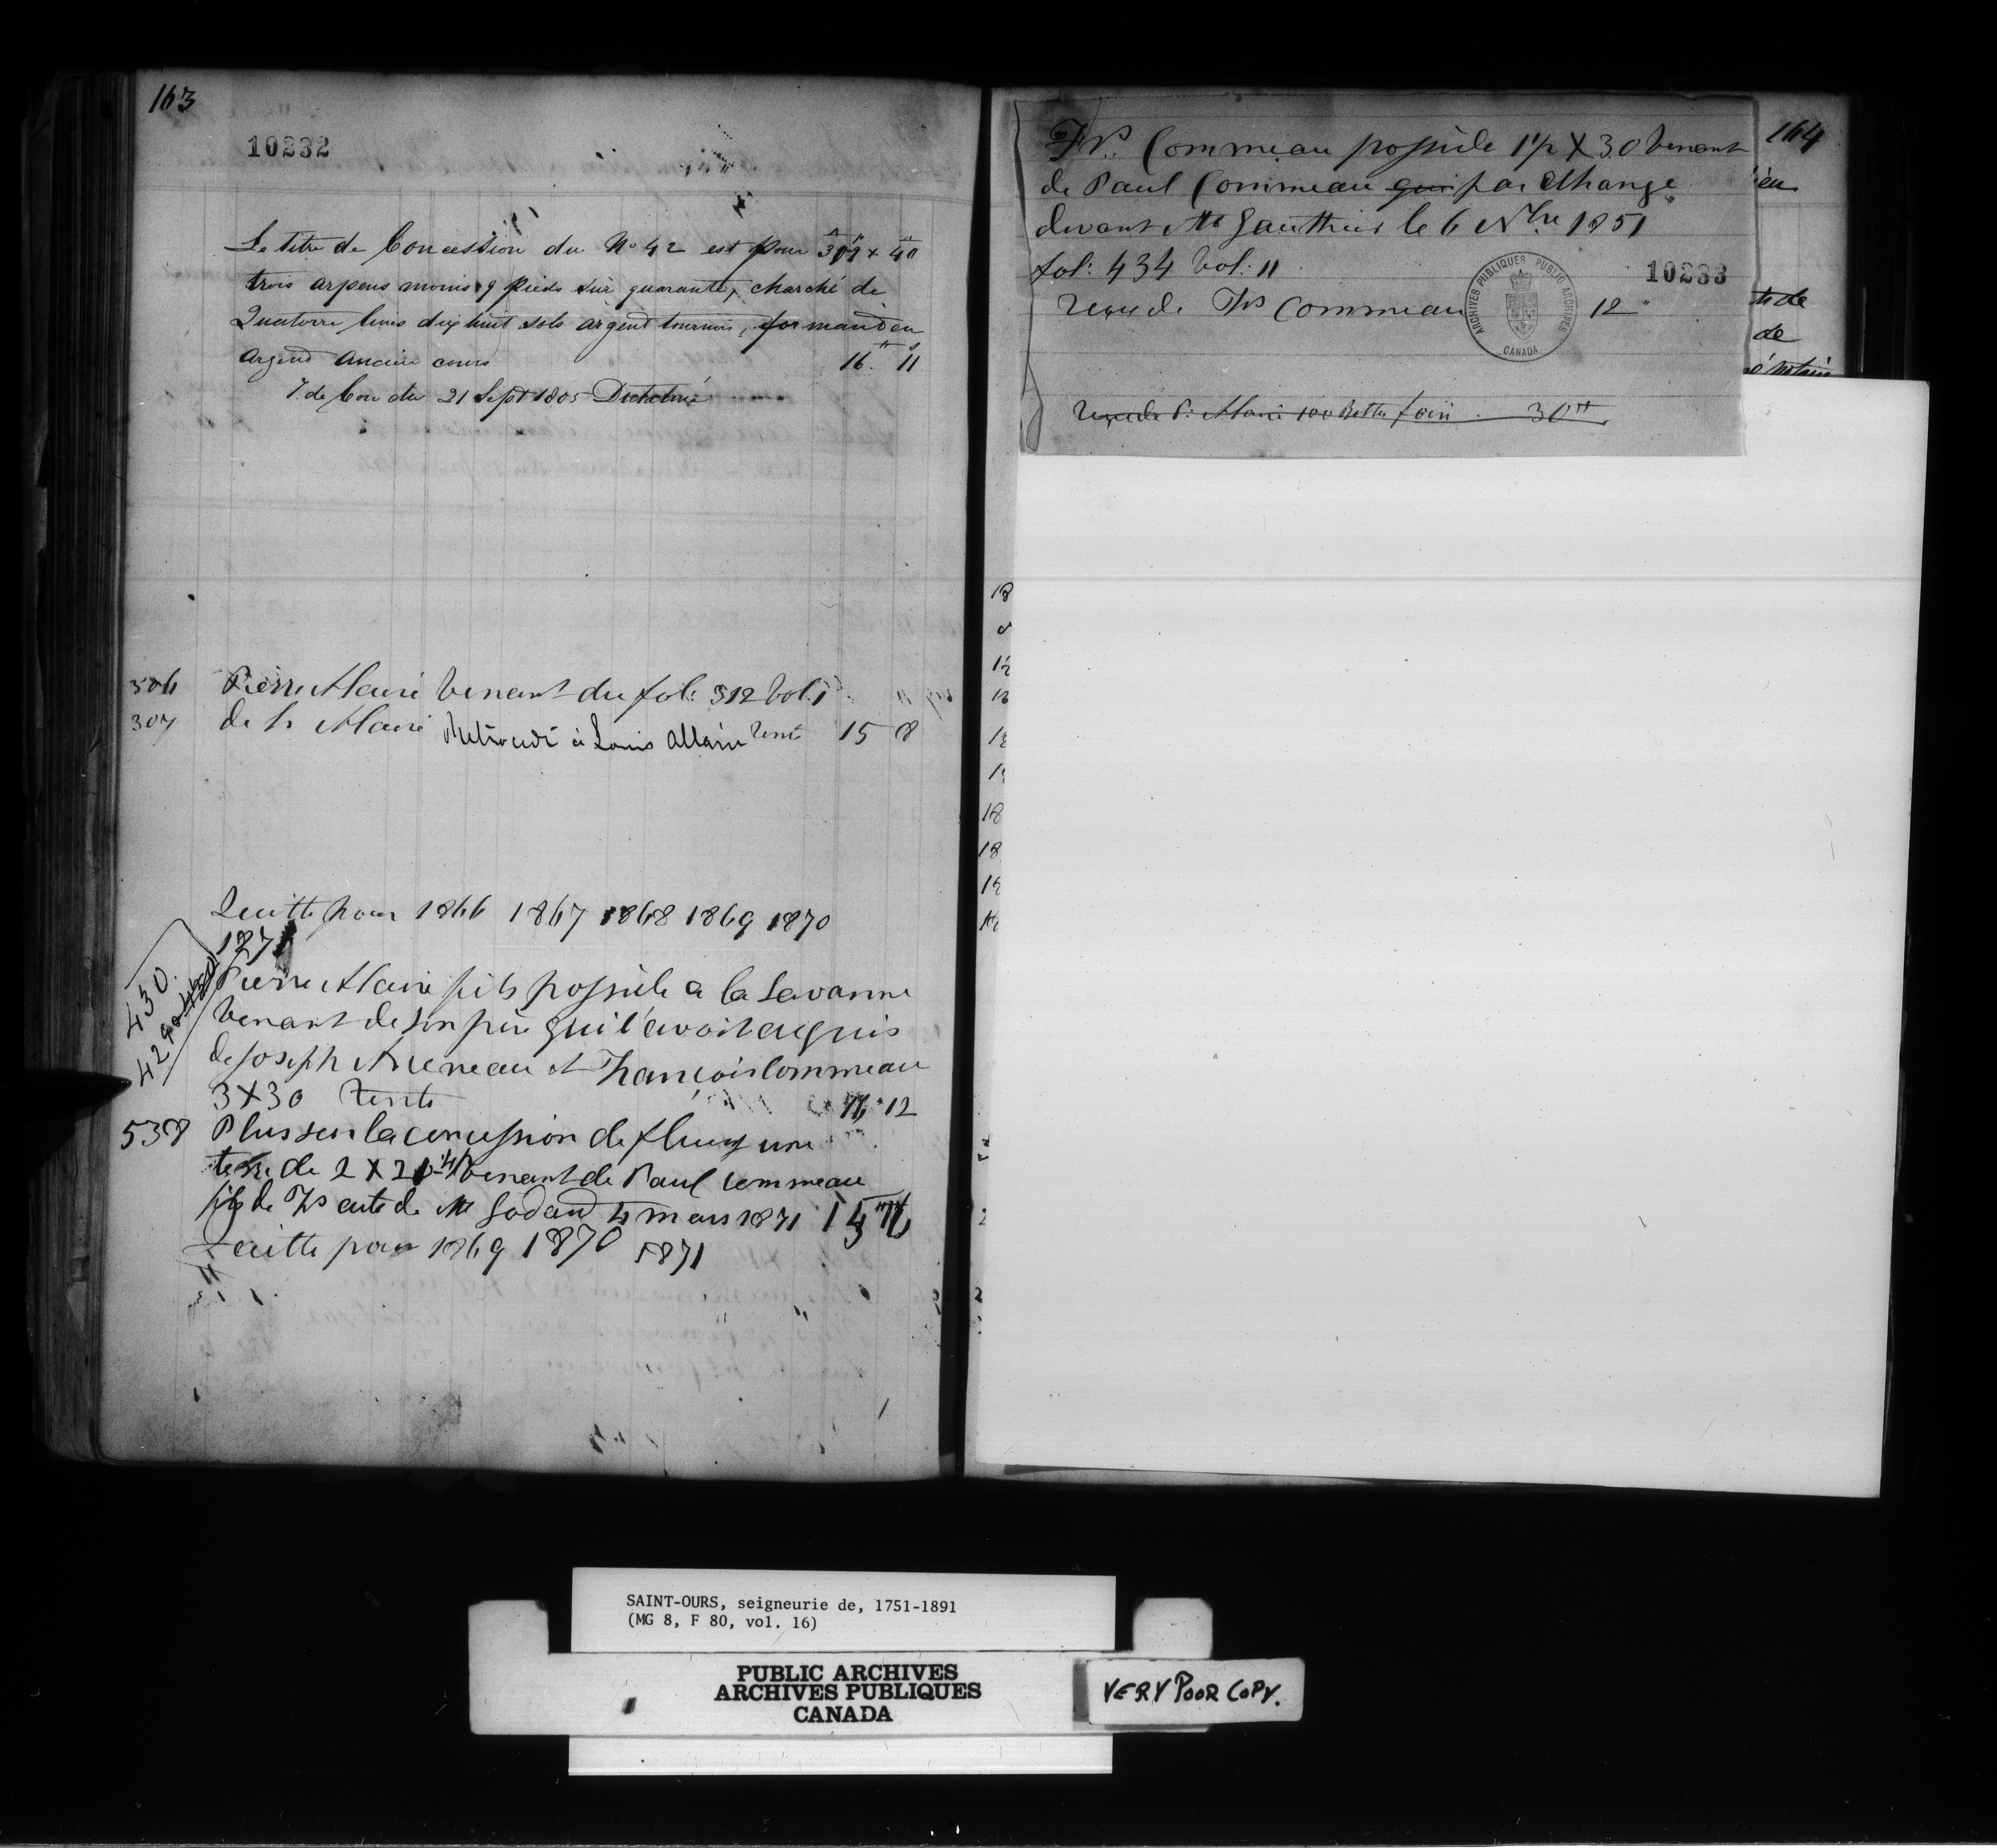 163
10232
Le titre de Concession du No 42 est pour 3 9 x 40
trois arpens moins 9 pieds sur quarante, charché de
Quatorze livres dix huit sols argent tournois, formand en
argend ancien cours 16. 11
T. de Con du 21 Sept 1805
306 Pierre Alaire venant du fol: 312 vol. 1
307 de Alaire Retrocedé à Louis Allaire rente 15 8
Quitte pour 1866 1867 1868 1869 1870
1871
430.
429
Pierre Alaire fils possède a la Savanne
venant de son père qui l'avoit acquis
de Joseph et François Commeau
3 X 30 rente 16 " 12
538 Plus sur la concession de une
terre de 2 X 21 venant de Paul Commeau
fils de Frs acte de Me Godard 4 mars 1871
Quitte pour 1869 1870 1871
164
Frs. Commeau possède 1 1/2 X 30 venant
de Paul Commeau qui par échange
devant Me Gauthier le 6 Nbre 1851
fol: 434 vol: 11
10233
reçu de Frs Commeau 12 "
ARCHIVES PUBLIQUES PUBLIC ARCHIVES
CANADA
reçu de P. Alaire 100 Bottes foin 30
te de
de
SAINT-OURS, seigneurie de, 1751-1891
(MG 8, F 80, vol. 16)
PUBLIC ARCHIVES
ARCHIVES PUBLIQUES
CANADA
VERY POOR COPY.